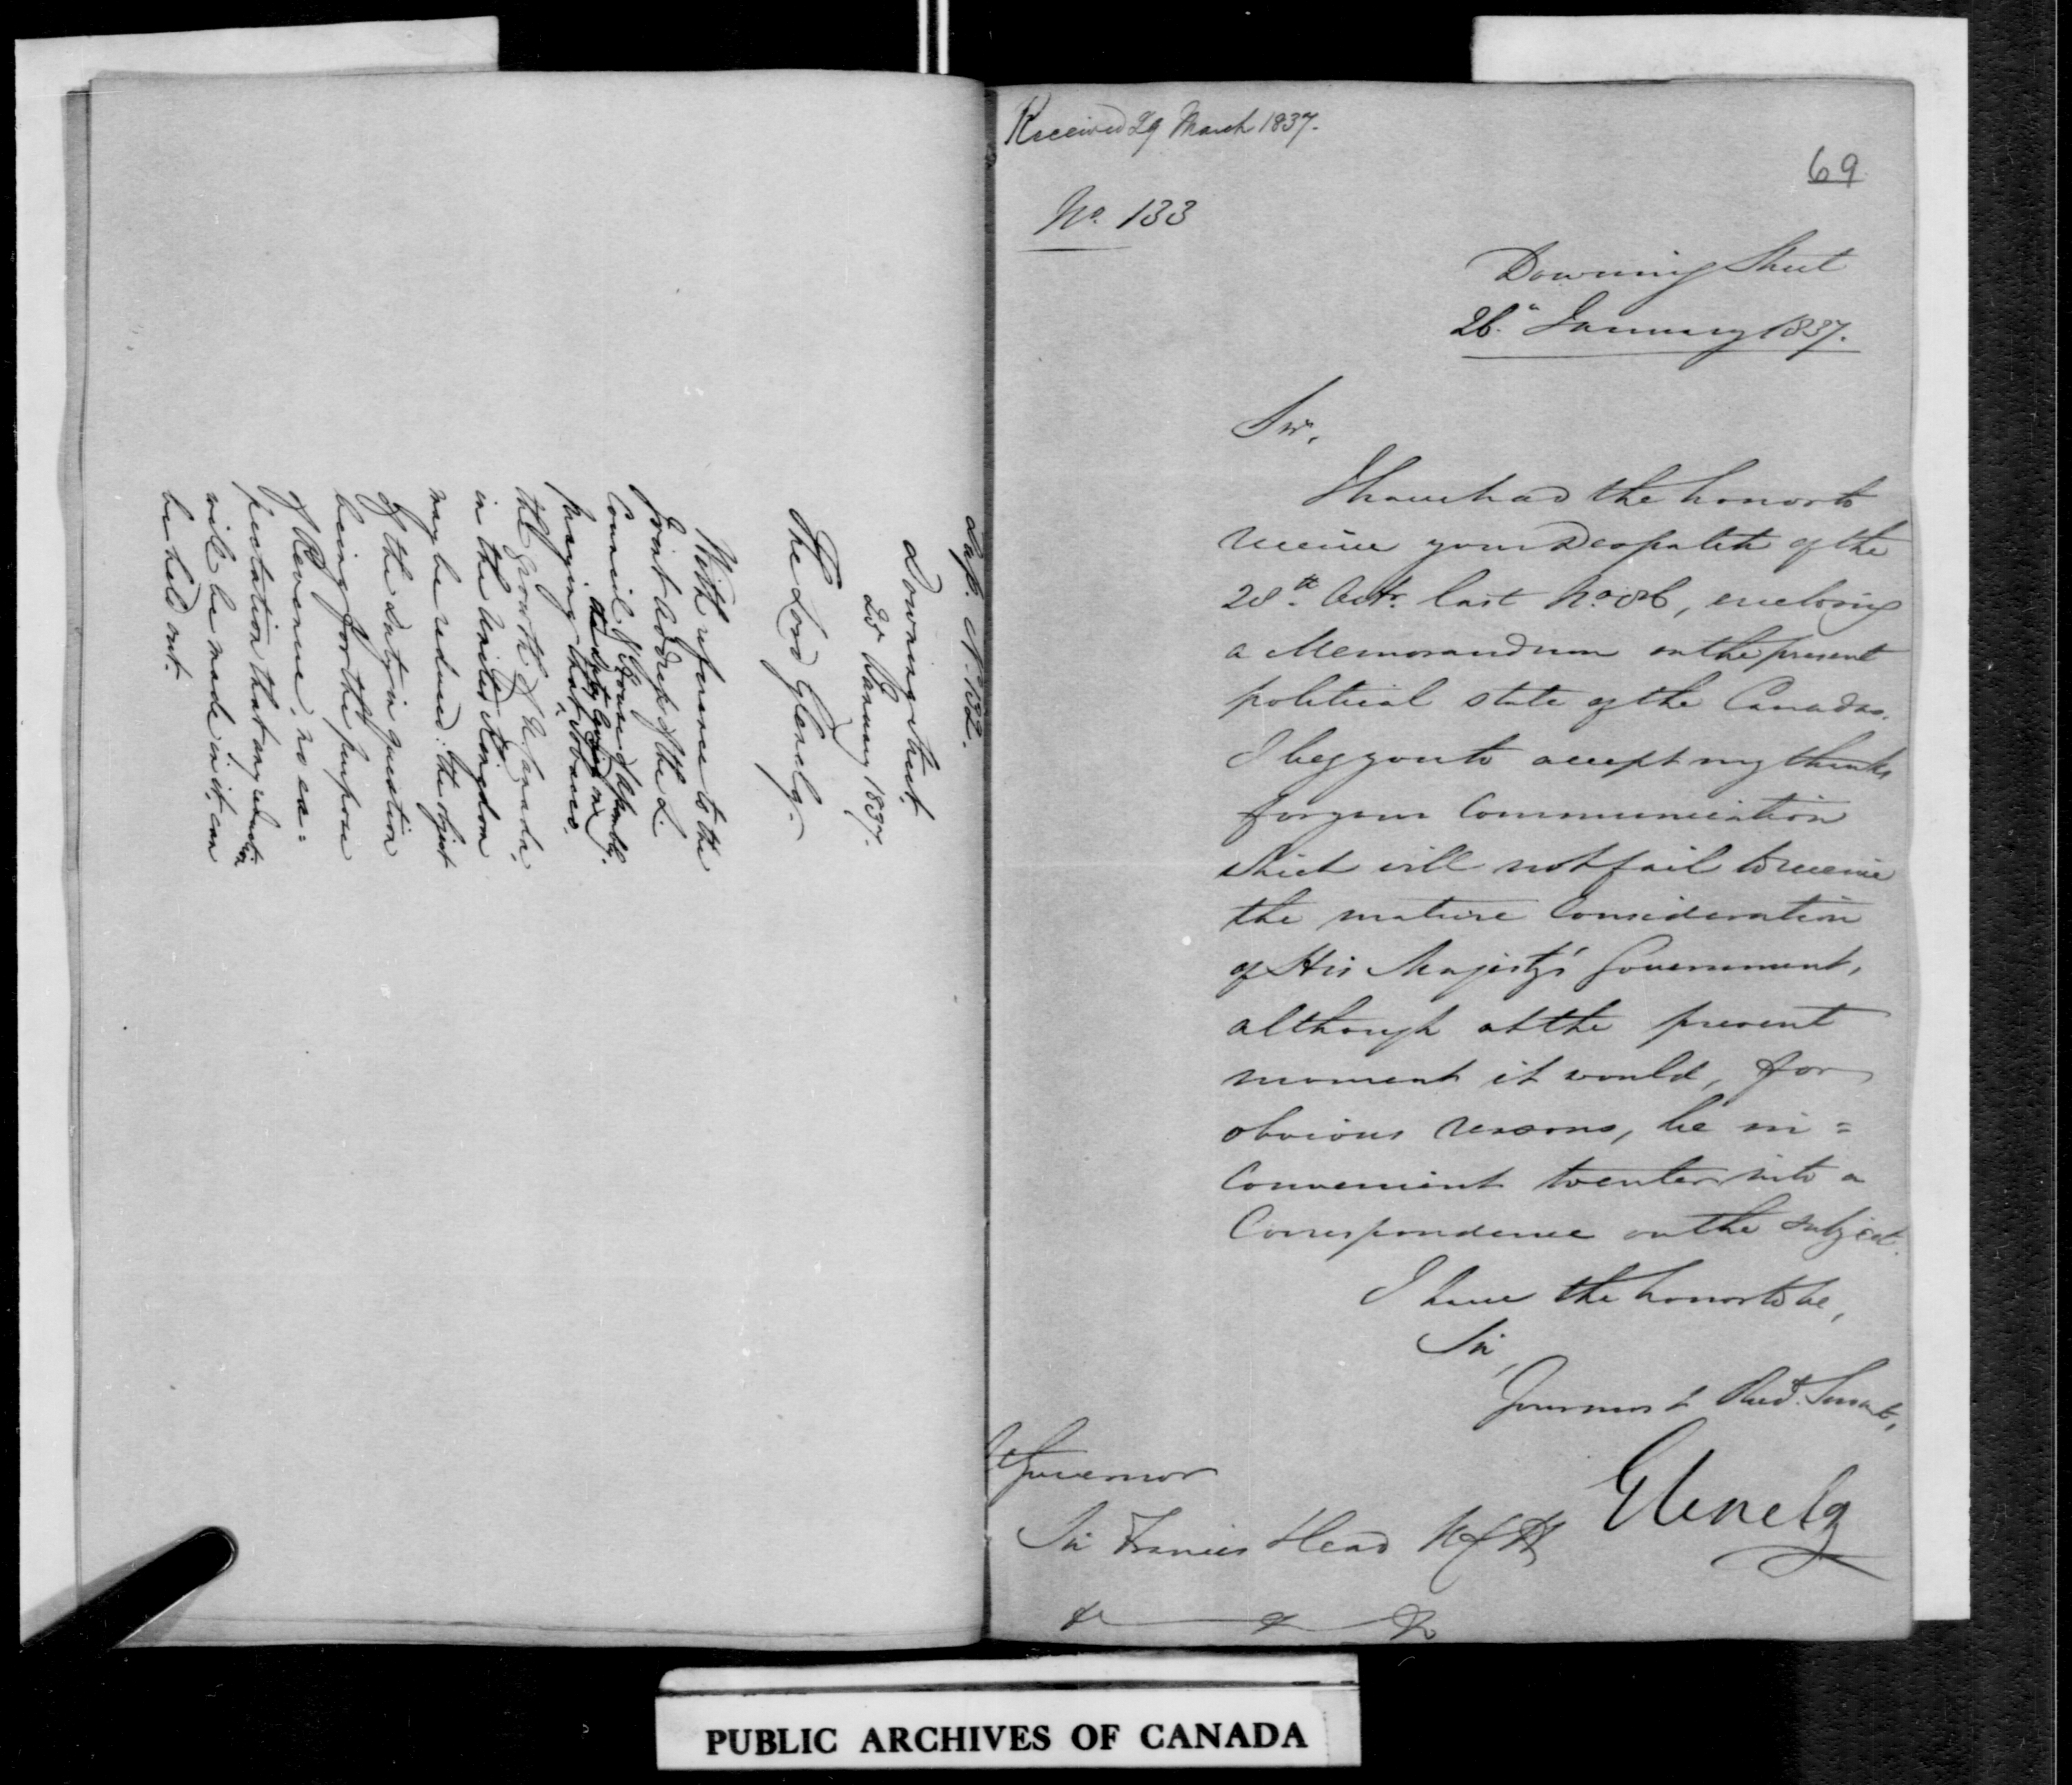 Dup. No. 132.
Downing Street
25 January 1837.
The Lord Glenelg.
With reference to the
Joint Address of the L.
Council & House of Assembly.
praying that the duty levied on Tobacco.
the growth of U. Canada,
in the United Kingdom
may be reduced: the object
of the duty in question
being for the purpose
of Revenue, no ex=
pectation that any reduction
will be made in it, can
be held out.
Received 29 March 1837.
69
No. 133
Downing Street
26. January 1837.
Sir,
I have had the honor to
receive your Despatch of the
28th Octr. last No. 86, enclosing
a Memorandum on the present
political state of the Canadas.
I beg you to accept my thanks
for your Communication
which will not fail to receive
the mature Consideration
of His Majesty's Government,
although at the present
moment it would, for
obvious reasons, be in=
convenient to enter into a
Correspondence on the subject.
I have the honor to be,
Sir,
Your most Obed. Servant,
Glenelg
Lt Governor
Sir Francis Head KCH
&c &c &c
PUBLIC ARCHIVES OF CANADA